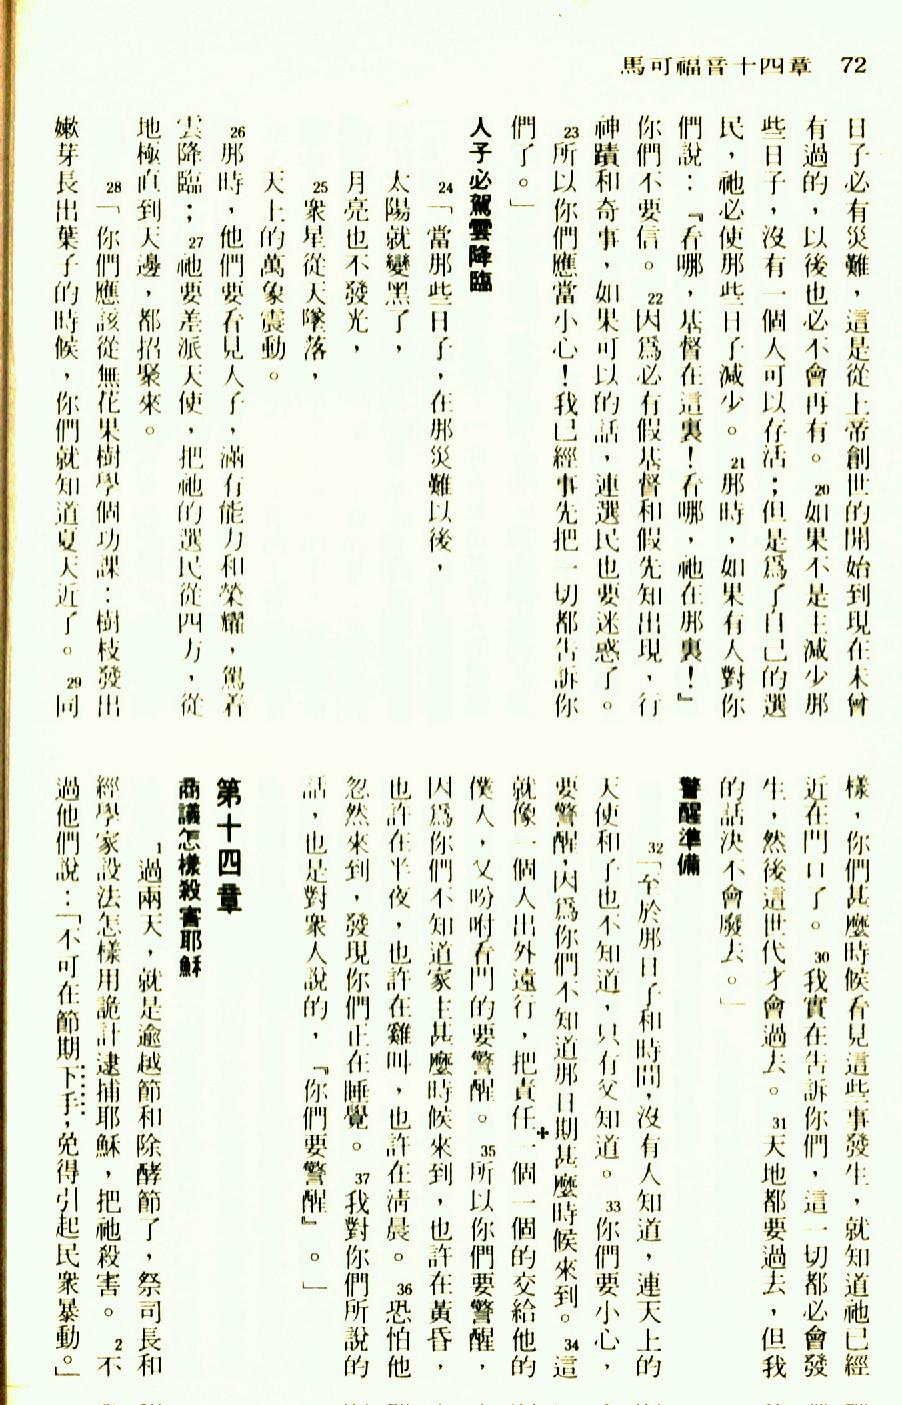 馬可福音十四章　72
日子必有災難，這是從上帝創世的開始到現在未曾
有過的，以後也必不會再有。20如果不是主減少那
些日子，沒有一個人可以存活；但是爲了自己的選
民，祂必使那些日子減少。21那時，如果有人對你
們說：『看哪，基督在這裏！看哪，祂在那裏！』
你們不要信。22因爲必有假基督和假先知出現，行
神蹟和奇事，如果可以的話，連選民也要迷惑了。
23所以你們應當小心！我已經事先把一切都告訴你
們了。」
人子必駕雲降臨
24「當那些日子，在那災難以後，
太陽就變黑了，
月亮也不發光，
25衆星從天墜落，
天上的萬象震動。
26那時，他們要看見人子，滿有能力和榮耀，駕着
雲降臨；27祂要差派天使，把祂的選民從四方，從
地極直到天邊，都招聚來。
28「你們應該從無花果樹學個功課：樹枝發出
嫩芽長出葉子的時候，你們就知道夏天近了。29同
樣，你們甚麼時候看見這些事發生，就知道祂已經
近在門口了。30我實在告訴你們，這一切都必會發
生，然後這世代才會過去。31天地都要過去，但我
的話決不會廢去。」
警醒準備
32「至於那日子和時間，沒有人知道，連天上的
天使和子也不知道，只有父知道。33你們要小心，
要警醒，因爲你們不知道那日期甚麼時候來到。34這
就像一個人出外遠行，把責任一個一個的交給他的
僕人，又吩咐看門的要警醒。35所以你們要警醒，
因爲你們不知道家主甚麼時候來到，也許在黃昏，
也許在半夜，也許在雞叫，也許在清晨。36恐怕他
忽然來到，發現你們正在睡覺。37我對你們所說的
話，也是對衆人說的，『你們要警醒』。」
第十四章
商議怎樣殺害耶穌
1過兩天，就是逾越節和除酵節了，祭司長和
經學家設法怎樣用詭計逮捕耶穌，把祂殺害。2不
過他們說：「不可在節期下手，免得引起民衆暴動。」